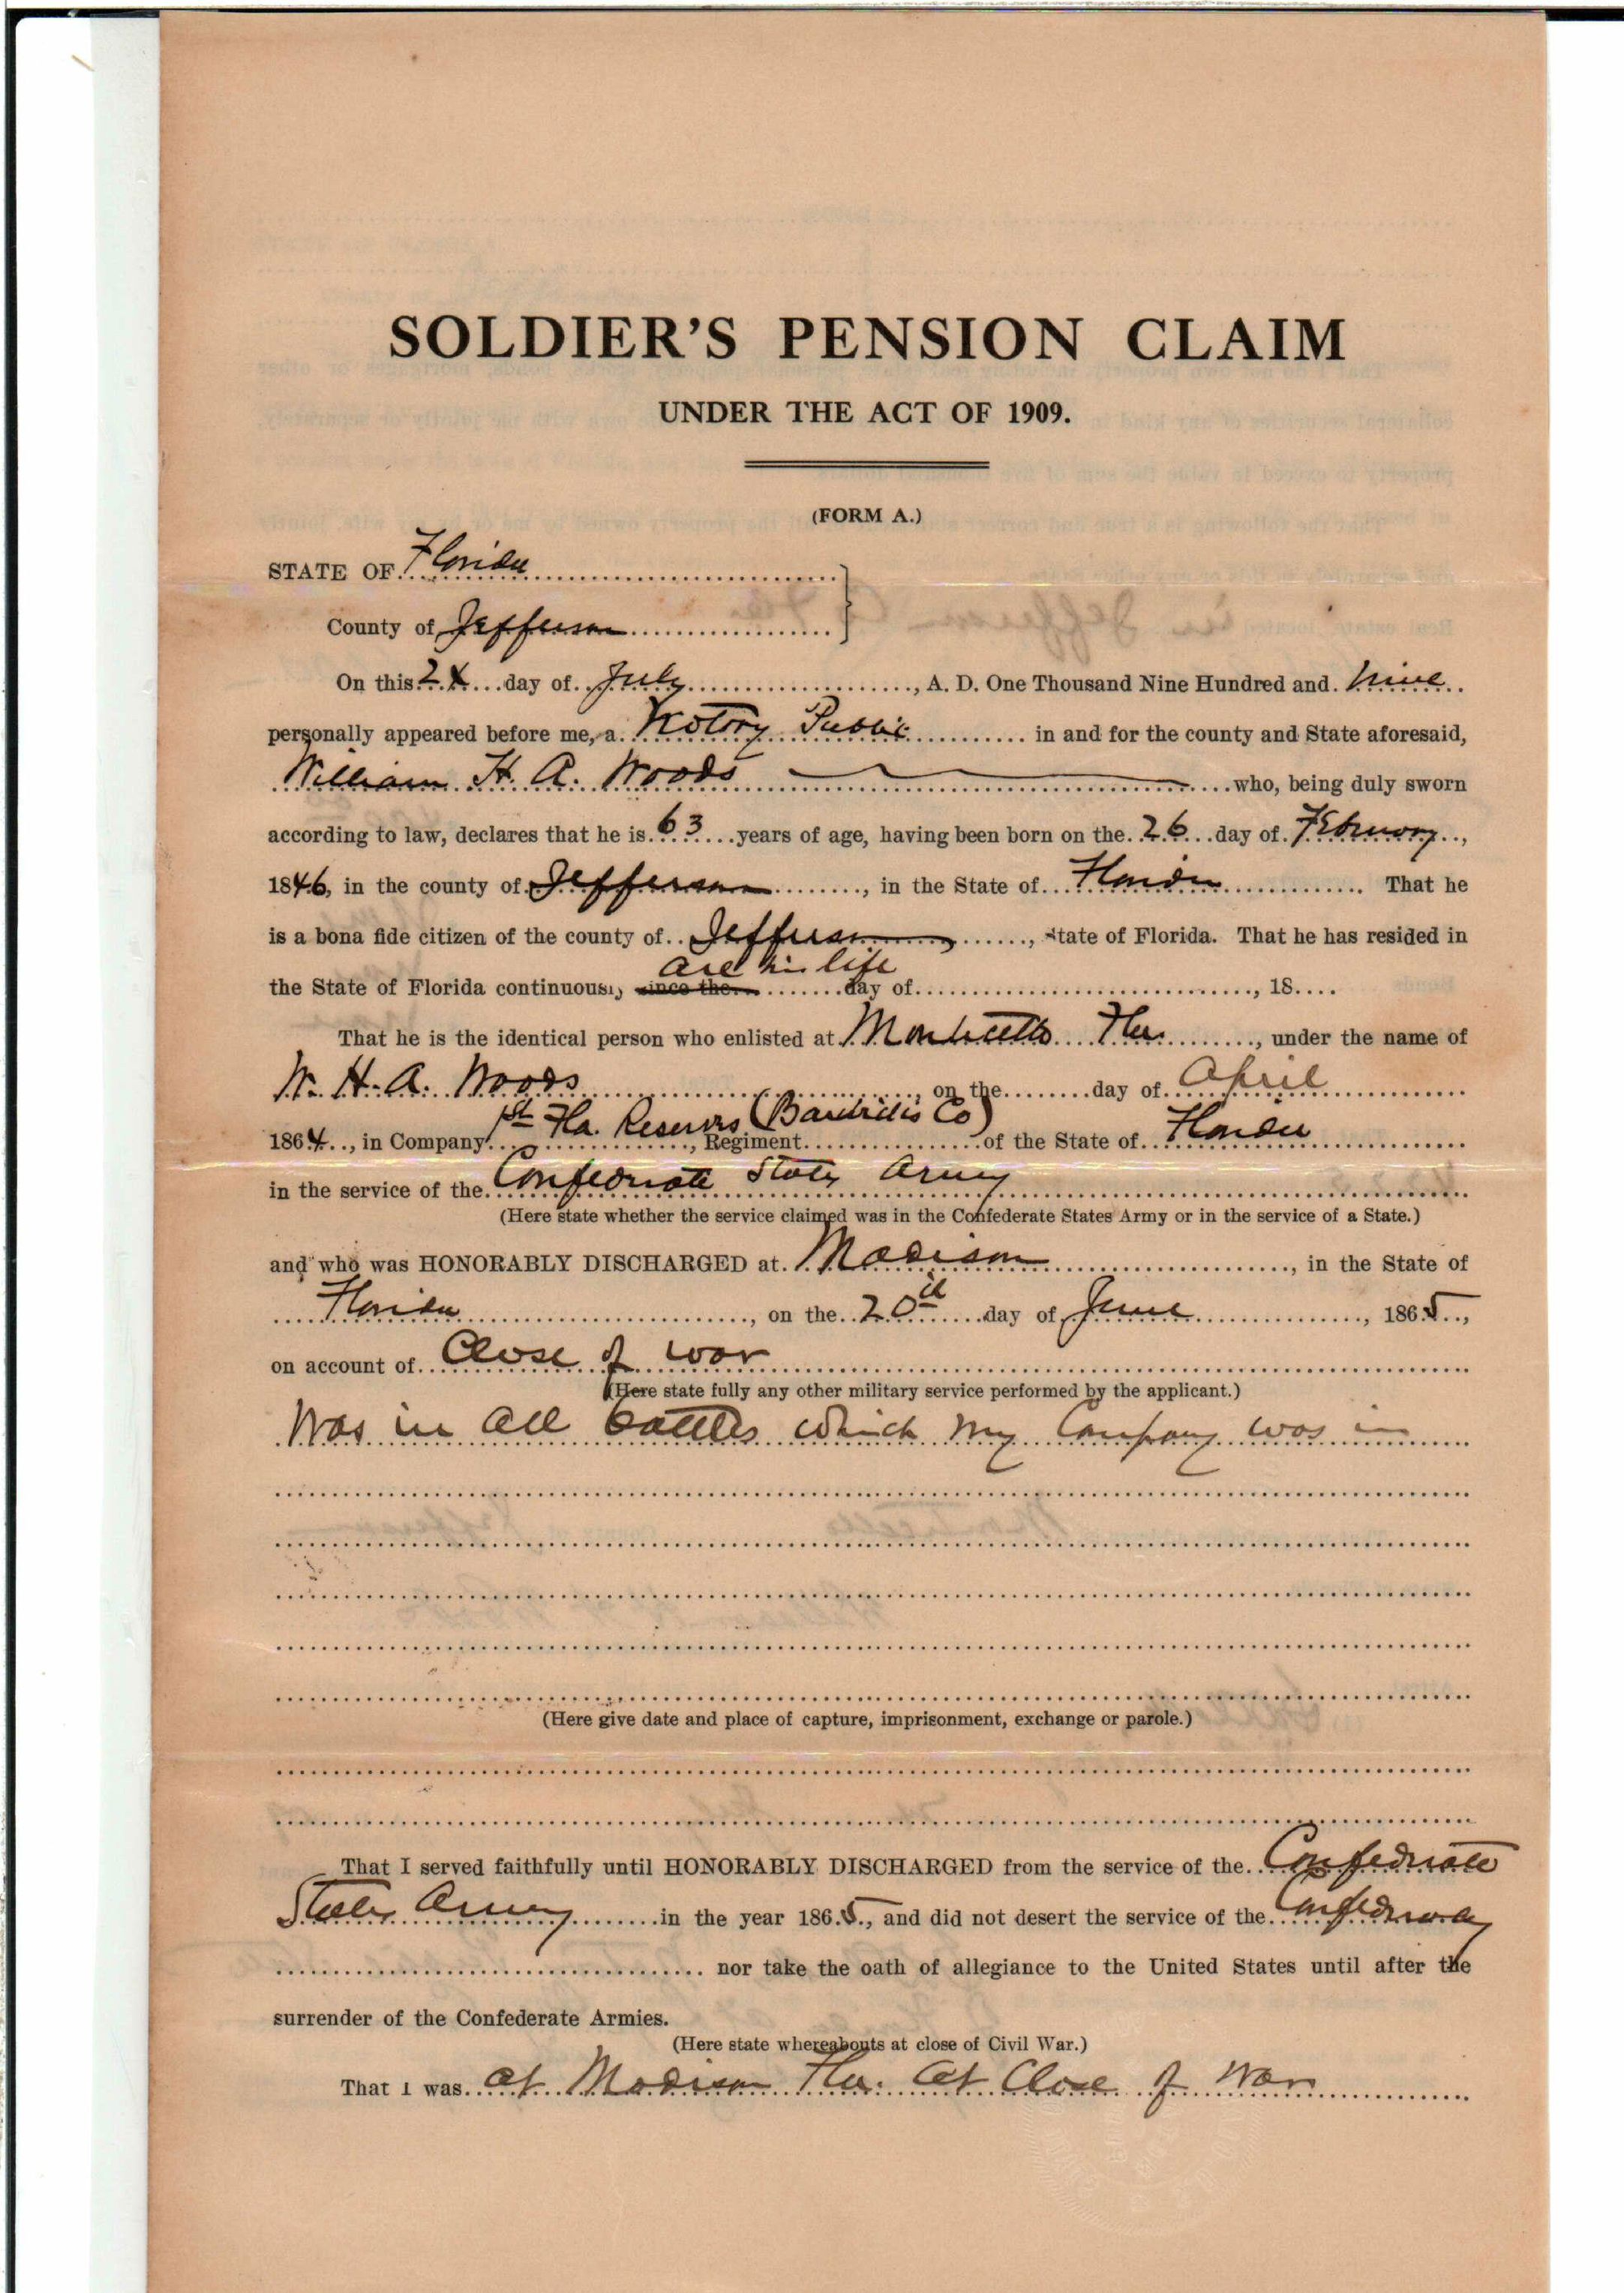 SOLDIER'S PENSION CLAIM
UNDER THE ACT OF 1909.
(FORM A.)
STATE OF Florida
County of Jefferson
On this 24 day of July, A. D. One Thousand Nine Hundred and nine
personally appeared before me, a Notory Public in and for the county and State aforesaid,
William H. A. Woods who, being duly sworn
according to law, declares that he is 63 years of age, having been born on the 26 day of February,
1846, in the county of Jefferson, in the State of Florida That he
is a bona fide citizen of the county of Jefferson, State of Florida. That he has resided in
all his life
the State of Florida continuously since the day of, 18
That he is the identical person who enlisted at Monticello Fla., under the name of
W. H. A. Woods, on the day of April
1864, in Company 1st Fla. Reserves Co), Regiment of the State of Florida
in the service of the Confederate States Army
(Here state whether the service claimed was in the Confederate States Army or in the service of a State.)
and who was HONORABLY DISCHARGED at Madison, in the State of
Florida, on the 20th day of June, 1865,
on account of Close of war
(Here state fully any other military service performed by the applicant.)
Was in all battles which my Company was in
(Here give date and place of capture, imprisonment, exchange or parole.)
That I served faithfully until HONORABLY DISCHARGED from the service of the Confederate
States Army in the year 1865, and did not desert the service of the Confederacy
nor take the oath of allegiance to the United States until after the
surrender of the Confederate Armies.
(Here state whereabouts at close of Civil War.)
That I was at Madison Fla. at Close of War